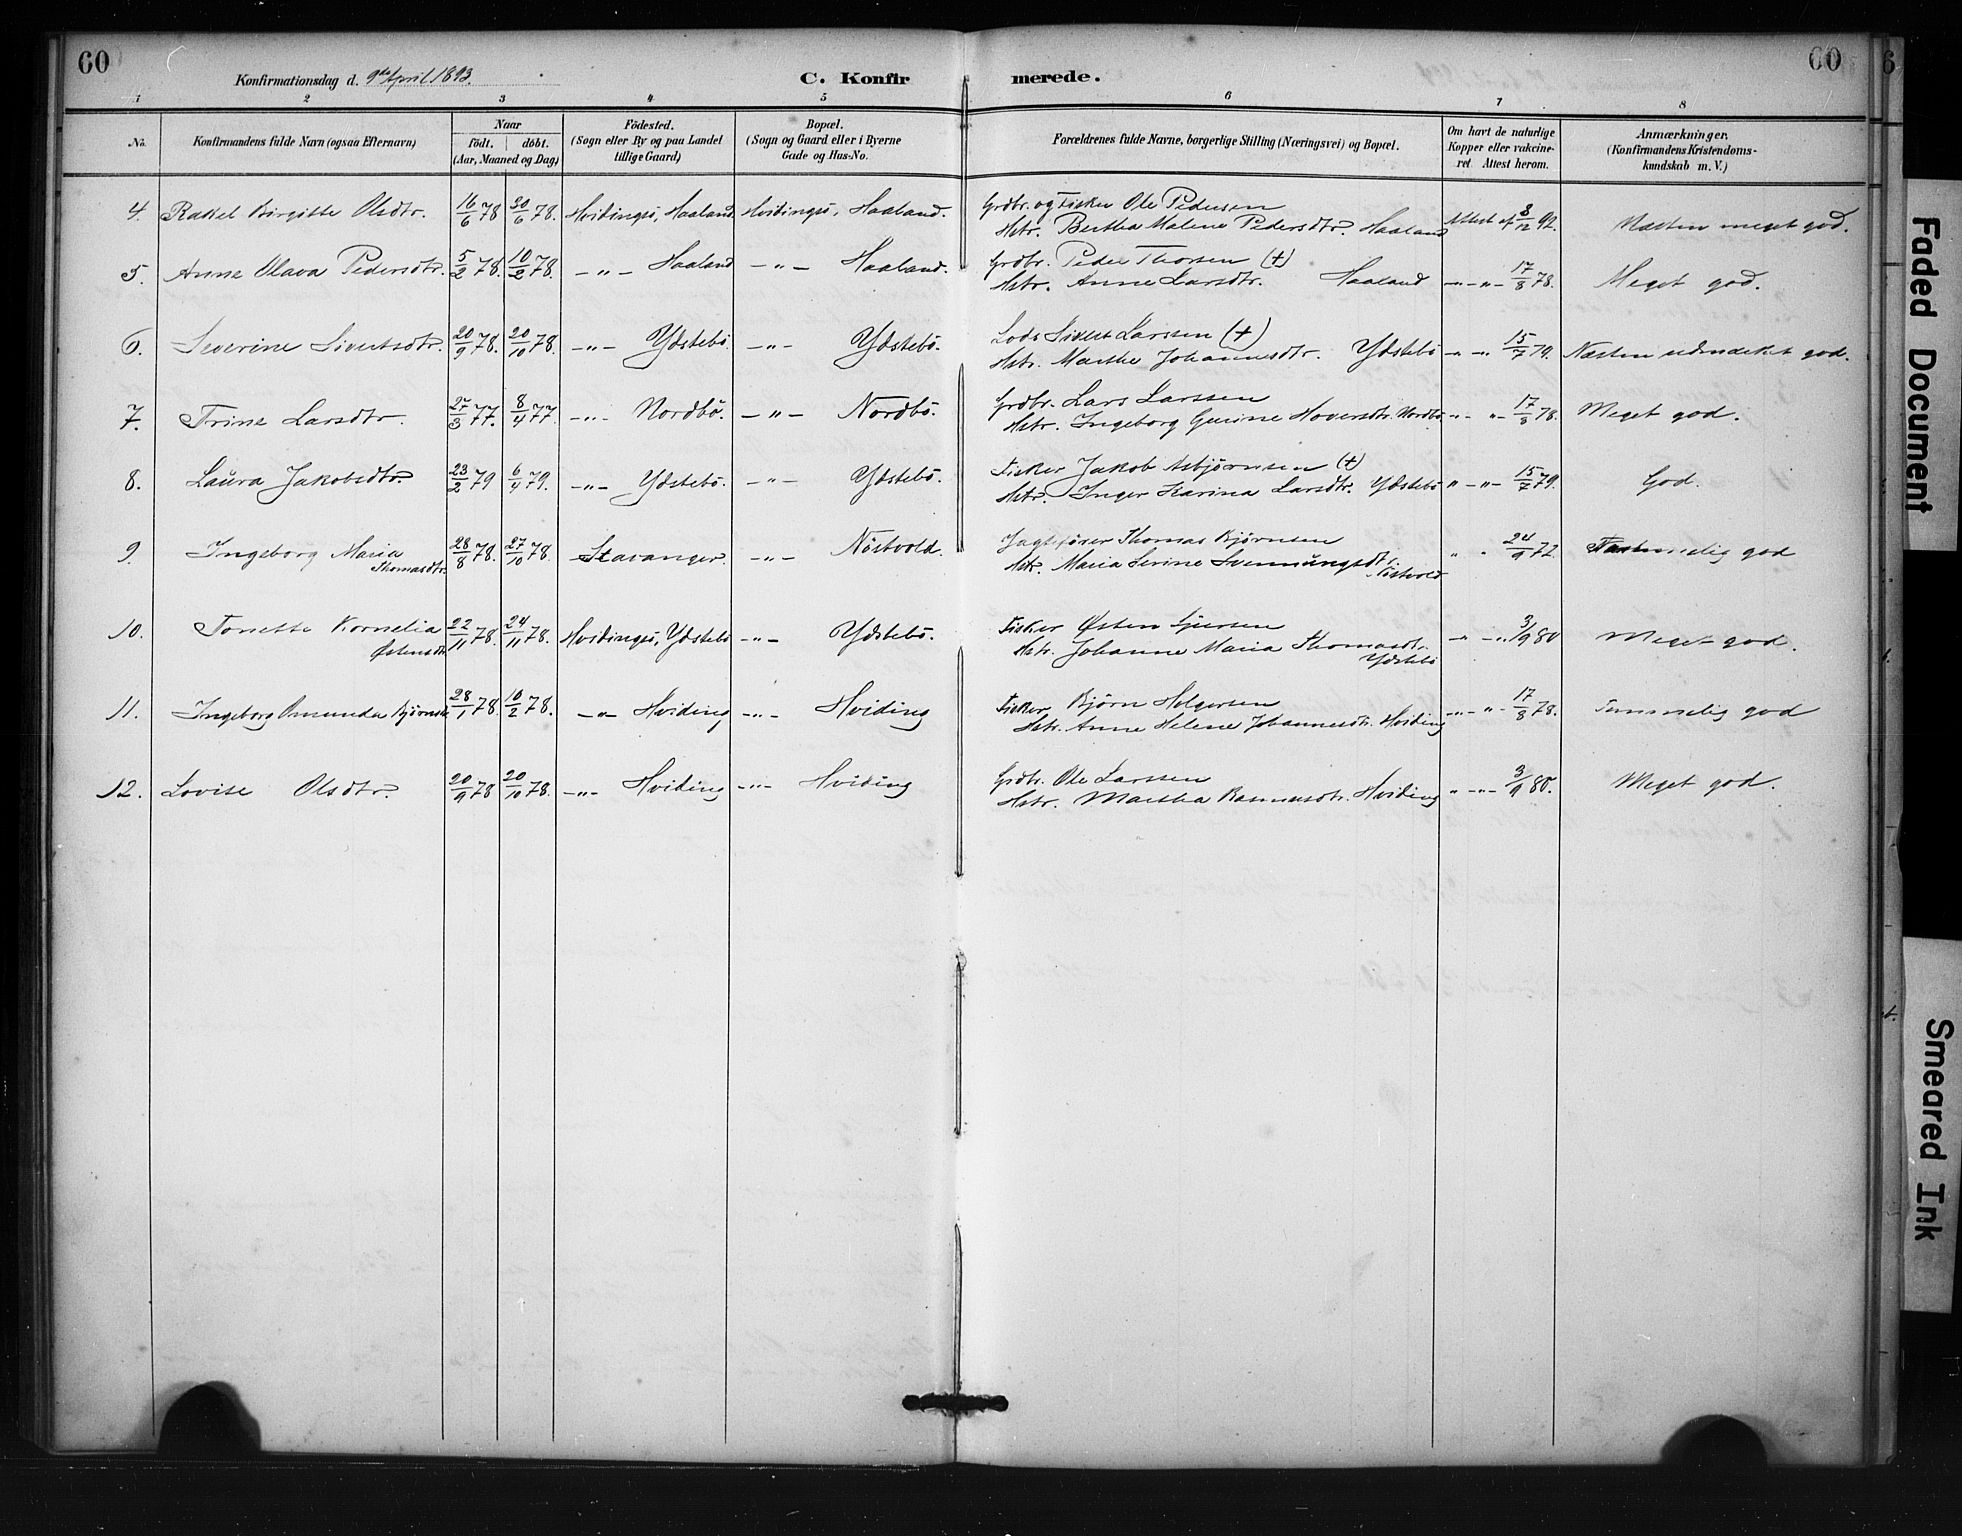 60
Konfirmationsdag d. 9de April 1893.
C. Konfirmerede.
60
6
1 2 3 4 5 6 7 8
No.
Konfirmandens fulde Navn (ogsaa Efternavn)
Naar
født. døbt.
(Aar, Maaned og Dag)
Fødested.
(Sogn eller By og paa Landet
tillige Gaard)
Bopæl.
(Sogn og Gaard eller i Byerne
Gade og Hus-No.
Forældrenes fulde Navne, borgerlige Stilling (Næringsvei) og Bopæl.
Om havt de naturlige
Kopper eller vakcine-
ret Attest herom.
Anmærkninger.
(Konfirmandens Kristendoms-
kundskab m. V.)
4. Rakel Birgitte Olsdtr. 16/6 78 30/6 78. Hvidingsö, Haaland. Hvidingsö, Haaland. Grdbr. og Fisker Ole Pedersen
Hstr. Bertha Malene Pedersdtr. Haaland Attest af 8/12 92. Næsten meget god.
5. Anne Olava Pedersdtr. 5/2 78. 10/2 78. -„- Haaland -„- Haaland. Grdbr. Peder Thorsen (+)
Hstr. Anne Larsdtr. Haaland -„- 17/8 78. Meget god.
6. Severine Sivertsdtr. 20/9 78. 20/10 78. -„- Ydstebö. -„- Ydstebö. Lods Sivert Larssen (+)
Hstr. Marthe Johannesdtr. Ydstebö „ „ 15/7 79. Næsten udmærket god.
7. Trine Larsdtr. 27/3 77. 8/4 77. -„- Nordbö. -„- Nordbö. Grdbr. Lars Larssen
Hstr. Ingeborg Gurine Hoversdtr. Nordbö „ „ 17/8 78. Meget god.
8. Laura Jakobsdtr. 23/2 79 6/4 79. -„- Ydstebö. -„- Ydstebö. Fisker Jakob Asbjørnsen (+)
Hstr. Inger Karina Larsdtr. Ydstebö „ -„- 15/7 79. God.
9. Ingeborg Maria
Thomasdtr. 28/8 78. 27/10 78. Stavanger. -„- Nöstvold. Jagtfører Thomas Bjørnsen
Hstr. Maria Serine Svenningsdtr.
Nöstvold „ „ 24/9 72. Temmelig god
10. Tonette Kornelia
Østensdtr. 22/11 78. 24/11 78. Hvidingsö, Ydstebö -„- Ydstebö. Fisker Østen Sjursen
Hstr. Johanne Maria Thomasdtr.
Ydstebö -„- 3/9 80 Meget god.
11. Ingeborg Omunda Bjørnsdtr. 28/1 78. 10/2 78. -„- Hviding -„- Hviding Fisker Bjørn Holgersen
Hstr. Anne Helene Johannesdtr. Hviding -„- „ 17/8 78. Temmelig god
12. Lovise Olsdtr. 20/9 78 20/10 78. -„- Hviding -„- Hviding Grdbr. Ole Larssen
Hstr. Martha Rasmusdtr. Hviding „ -„- 3/9 80. Meget god.
Faded Document
Smeared Ink